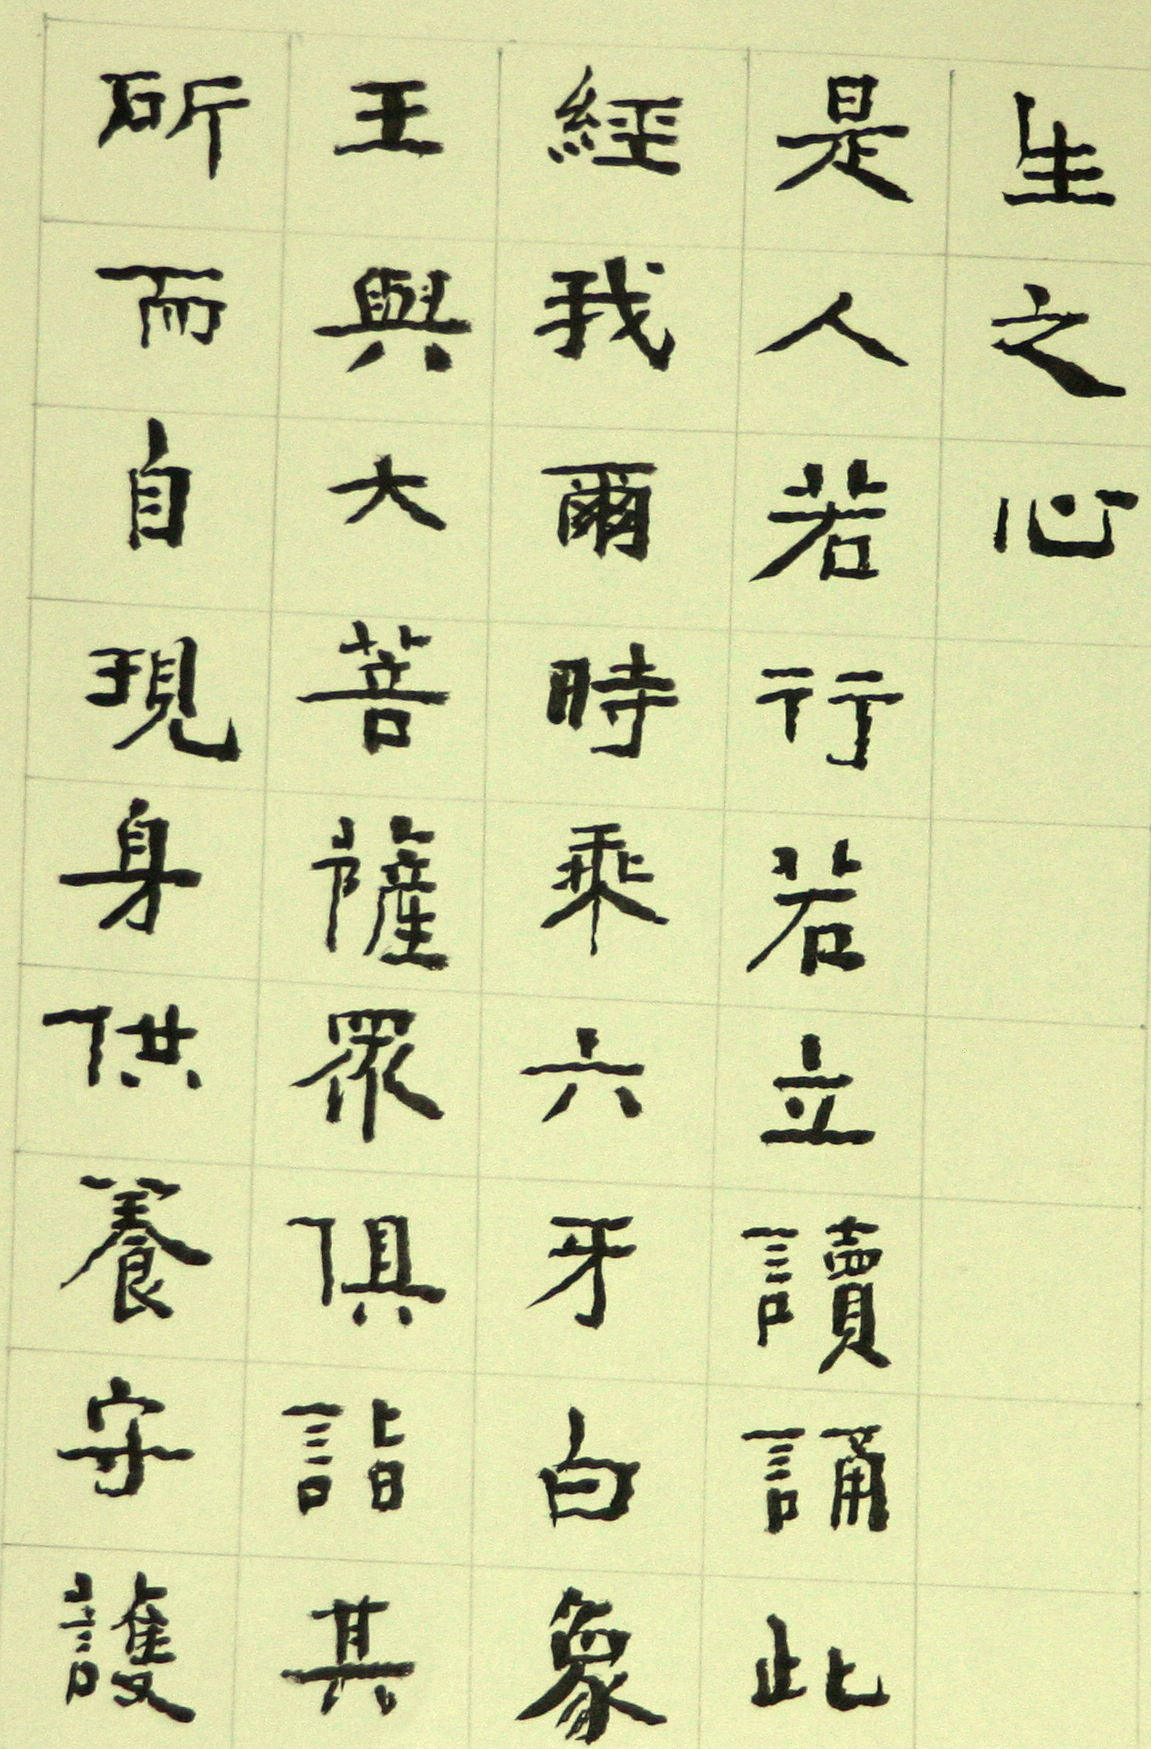 生之心
是人若行若立讀誦此
經我爾時乘六牙白象
王與大菩薩眾俱詣其
所而自現身供養守護